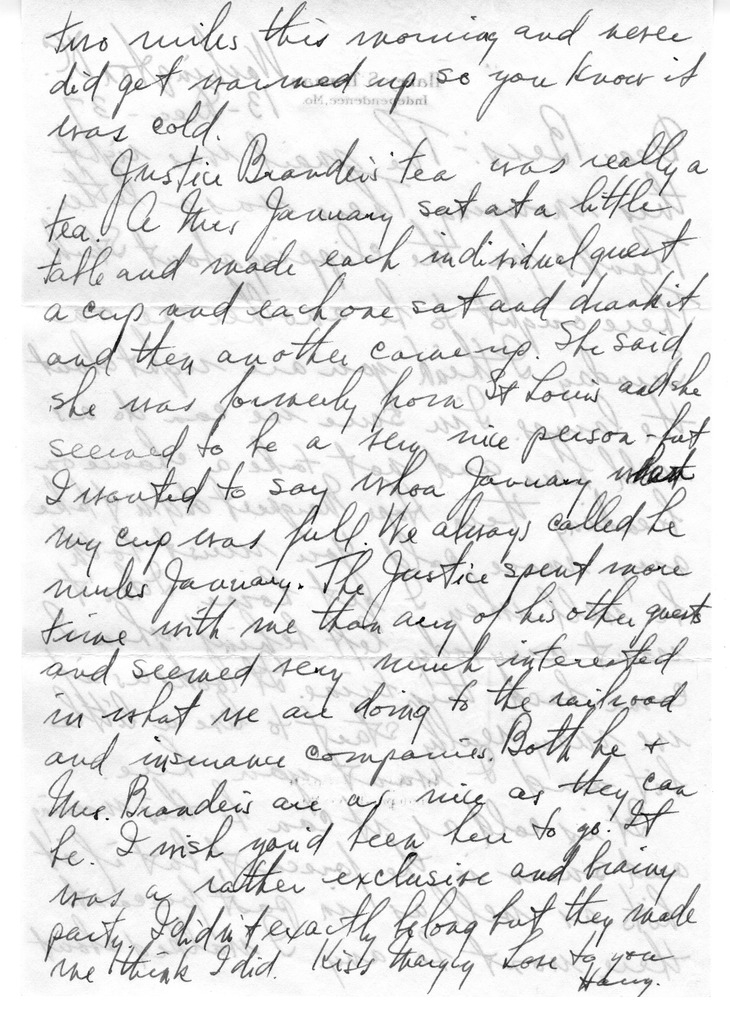 two miles this morning and never
did get warmed up so you know it
was cold.
Justice Brandeis' tea was really a
tea. A Mrs January sat at a little
table and made each individual guest
a cup and each one sat and drank it
and then another came up. She said
she was formerly from St Louis and she
seemed to be a very nice person - but
I wanted to say whoa January when
my cup was full. We always called he
mules January. The Justice spent more
time with me than any of his other guests
and seemed very much interested
in what we are doing to the railroad
and insurance companies. Both he +
Mrs. Brandeis are as nice as they can
be. I wish you'd been here to go. It
was a rather exclusive and brainy
party. I didn't exactly belong but they made
me think I did. Kiss Margey Love to you
Harry.